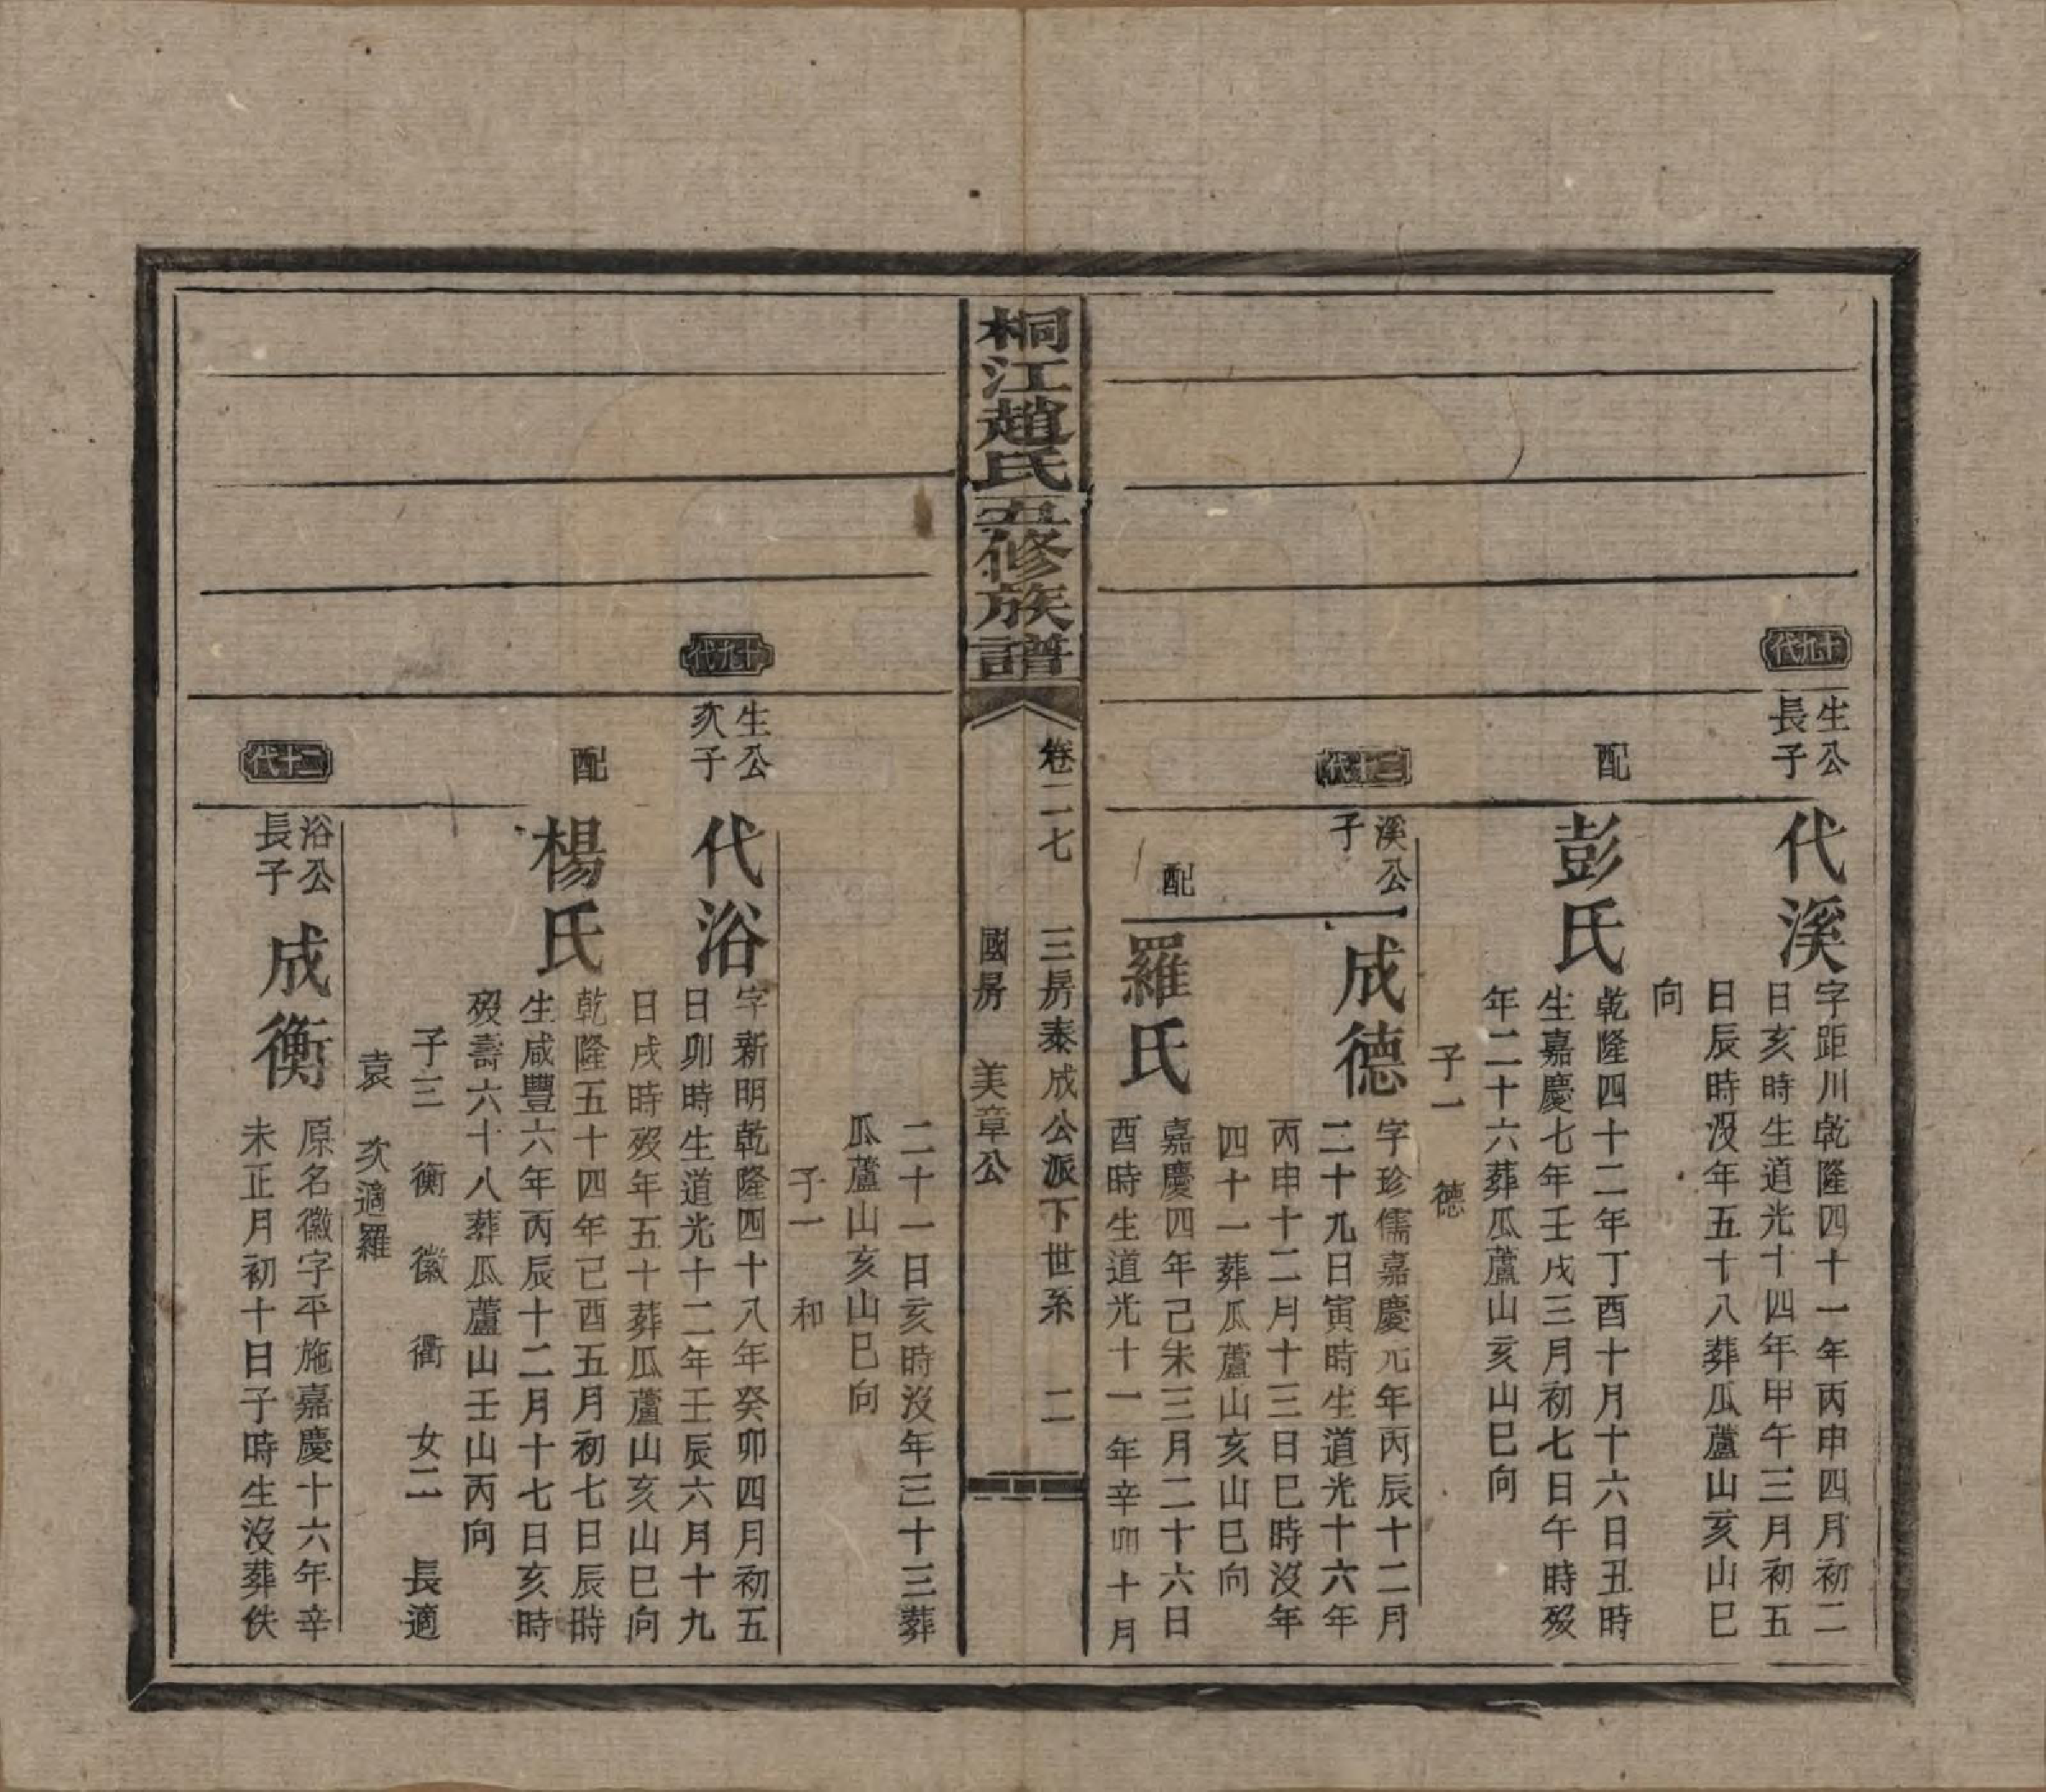 十九代
生公
長子
代溪
字距川乾隆四十一年丙申四月初二
日亥時生道光十四年甲午三月初五
日辰時没年五十八葬瓜蘆山亥山巳
向
配
彭氏
乾隆四十二年丁酉十月十六日丑時
生嘉慶七年壬戌三月初七日午時歿
年二十六葬瓜蘆山亥山巳向
子一　德
二十代
溪公
子
成德
字珍儒嘉慶元年丙辰十二月
二十九日寅時生道光十六年
丙申十二月十三日巳時没年
四十一葬瓜蘆山亥山巳向
配
羅氏
嘉慶四年己未三月二十六日
酉時生道光十一年辛卯十月
桐江趙氏五修族譜
卷二七　三房泰成公派下世系　二
國房　美章公
二十一日亥時没年三十三葬
瓜蘆山亥山巳向
子一　和
十九代
生公
次子
代浴
字新明乾隆四十八年癸卯四月初五
日卯時生道光十二年壬辰六月十九
日戌時歿年五十葬瓜蘆山亥山巳向
配
楊氏
乾隆五十四年己酉五月初七日辰時
生咸豐六年丙辰十二月十七日亥時
歿壽六十八葬瓜蘆山壬山丙向
子三　衡　徽　衢　女二　長適
袁　次適羅
二十代
浴公
長子
成衡
原名徽字平施嘉慶十六年辛
未正月初十日子時生没葬佚